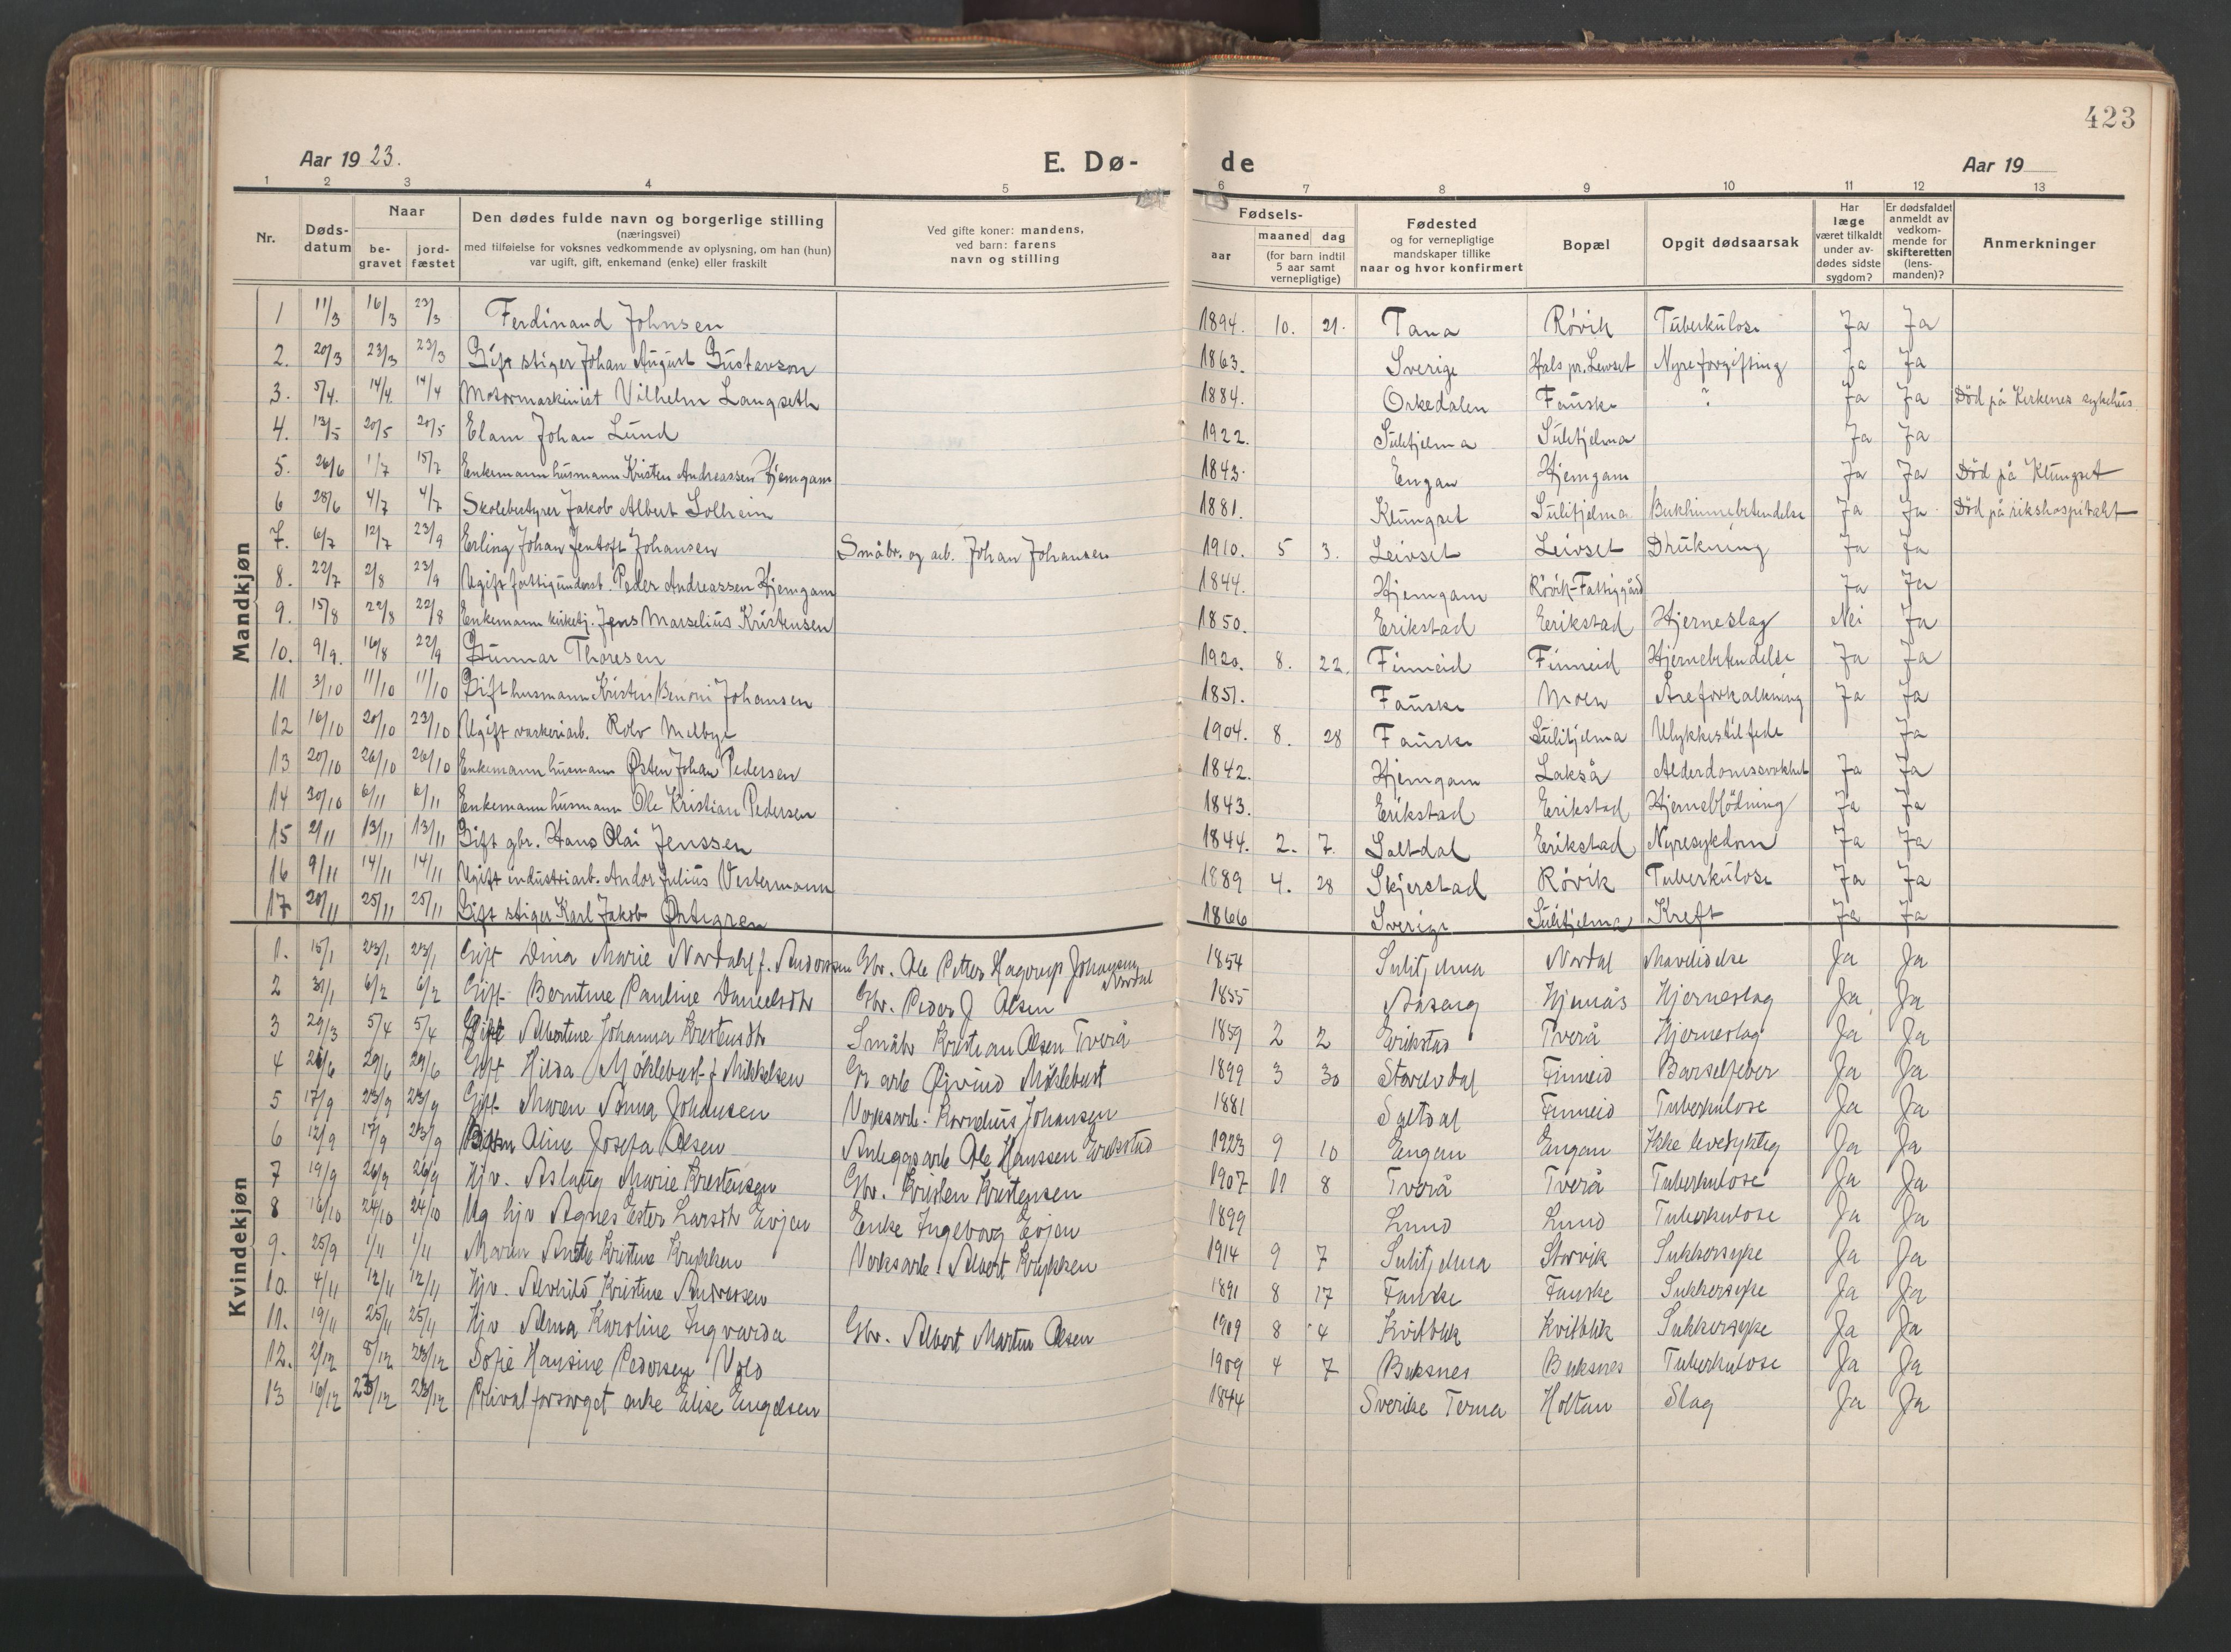 423
Aar 19 23.
E. Dø-
de
Aar 19
1 2 3 4 5 6 7 8 9 10 11 12 13
Nr.
Døds-
datum
Naar
be-
gravet
jord-
fæstet
Den dødes fulde navn og borgerlige stilling
(næringsvei)
med tilføielse for voksnes vedkommende av oplysning, om han (hun)
var ugift, gift, enkemand (enke) eller fraskilt
Ved gifte koner: mandens,
ved barn: farens
navn og stilling
Fødsels-
aar
maaned dag
(for barn indtil
5 aar samt
vernepligtige)
Fødested
og for vernepligtige
mandskaper tillike
naar og hvor konfirmert
Bopæl
Opgit dødsaarsak
Har
læge
været tilkaldt
under av-
dødes sidste
sygdom?
Er dødsfaldet
anmeldt av
vedkom-
mende for
skifteretten
(lens-
manden)?
Anmerkninger
Mandkjøn
1 11/3 16/3 23/3 Ferdinand Johnsen 1894. 10. 21. Tana Røvik Tuberkulose Ja Ja
2. 20/3 23/3 23/3 Gift stiger Johan August Gustavson 1863. Sverige Hals pr. Leivset Nyreforgifting Ja Ja
3. 5/4. 14/4. 14/4 Motormaskinist Vilhelm Langseth 1884. Orkedalen Fauske ? Ja Ja Død på Kirkenes sykehus.
4. 13/5 20/5 20/5 Elam Johan Lund 1922. Sulitjelma Sulitjelma Ja Ja
5. 26/6 1/7 15/7 Enkemann husmann Kristen Andreassen Hjemgam 1843. Engan Hjemgam Ja Ja Død på Klungset
6 28/6 4/7 4/7 Skolebestyrer Jakob Albert Solheim 1881. Klungset Sulitjelma Bukhinnebetendelse Ja Ja Død på rikshospitalet
7. 6/7 12/7 23/9 Erling Johan Jentoft Johansen Småbr. og arb. Johan Johansen 1910. 5 3. Leivset Leivset Drukning Ja Ja
8. 22/7 2/8 23/9 Ugift fattigunderst. Peder Andreassen Hjemgam 1844. Hjemgam Røvik-Fattiggård Ja Ja
9. 15/8 22/8 22/8 Enkemann kirketj. Jens Marselius Kristensen 1850. Erikstad Erikstad Hjerneslag Nei Ja
10. 9/9. 16/8 22/9 Gunnar Thoresen 1920. 8. 22. Finneid Finneid Hjernebetendelse Ja Ja
11 3/10 11/10 11/10 Gift husmann Kristen Benoni Johansen 1851. Fauske Moen Åreforkalkning Ja Ja
12 16/10 20/10 23/10 Ugift vaskeriarb. Rolv Melbye 1904. 8. 28 Fauske Sulitjelma Ulykkestilfede Ja
13 20/10 26/10 26/10 Enkemann husmann Østen Johan Pedersen 1842. Hjemgam Lakså Alderdomssvakhet Ja Ja
14 30/10 6/11 6/11 Enkemann husmann Ole Kristian Pedersen 1843. Erikstad Erikstad Hjerneblødning Ja Ja
15 2/11 13/11 13/11 Gift gbr. Hans Olai Jenssen 1844. 2. 7. Saltdal Erikstad Nyresykdom Ja Ja
16 9/11 14/11 14/11 Ugift industriarb. Andor Julius Vestermann 1889 4. 28 Skjerstad Røvik Tuberkulose Ja Ja
17 20/11 25/11 25/11 Gift stiger Karl Jakob Østigren 1866 Sverige Sulitjelma Kreft Ja Ja
Kvindekjøn
1. 15/1 23/1 23/1 Gift Dina Marie Nordahl f. Andersen Gbr. Ole Petter Hagerup Johansen Nordal 1854 Sulitjelma Nordal Mavelidelse Ja Ja
2 31/1 6/2 6/2 Gift Berntine Pauline Danielsdtr Gbr. Peder J Olsen 1855 Hjemås Hjerneslag Ja Ja
3 29/3 5/4 5/4 Gift Albertine Johanna Kristensdtr Småbr Kristian Olsen Tverå 1859 2 2 Erikstad Tverå Hjerneslag Ja Ja
4 29/6 29/6 Gift Hilda Møklebust f Mikkelsen Gr arb Øjvind Møklebust 1899 3 30 Finneid Barselfeber Ja Ja
5 17/9 23/9 23/9 Gift Maren Anna Johansen Verksarb. Kornelius Johansen 1881 Saltdal Finneid Tuberkulose Ja Ja
6 12/9 17/9 23/9 Barn Aline Josefa Olsen Anleggsarb Ole Hanssen Erikstad 1923 9 10 Engan Engan Ikke levedyktig Ja Ja
7 19/9 26/9 26/9 Hjv. Aslaug Marie Kristensen Gbr. Kristen Kristensen 1907 11 8 Tverå Tverå Tuberkulose Ja Ja
8 16/10 24/10 24/10 Ug hjv Agnes Ester Larsdtr Evjen Enke Ingeborg Evjen 1899 Lund Lund Tuberkulose Ja Ja
9. 25/9 1/11 1/11 Maren Anette Kristine Krykken Verksarb. Albert Krykken 1914 9 7 Sulitjelma Storvik Sukkersyke Ja Ja
10. 4/11 12/11 12/11 Hjv. Alvhild Kristine Andersen 1891 8 17 Fauske Fauske Sukkersyke Ja Ja
11. 19/11 25/11 25/11 Hjv Alma Karoline Ingvarda Gbr. Albert Martin Olsen 1909 8 4 Kvitblik Kvitblik Sukkersyke Ja Ja
12. 2/12 8/12 23/12 Sofie Hansine Pedersen Vold 1909 4 7 Buksnes Buksnes Tuberkulose Ja Ja
13 16/12 23/12 23/12 Privat forsørget enke Elise Engelsen 1844 Sverike Terna Holtan Slag Ja Ja